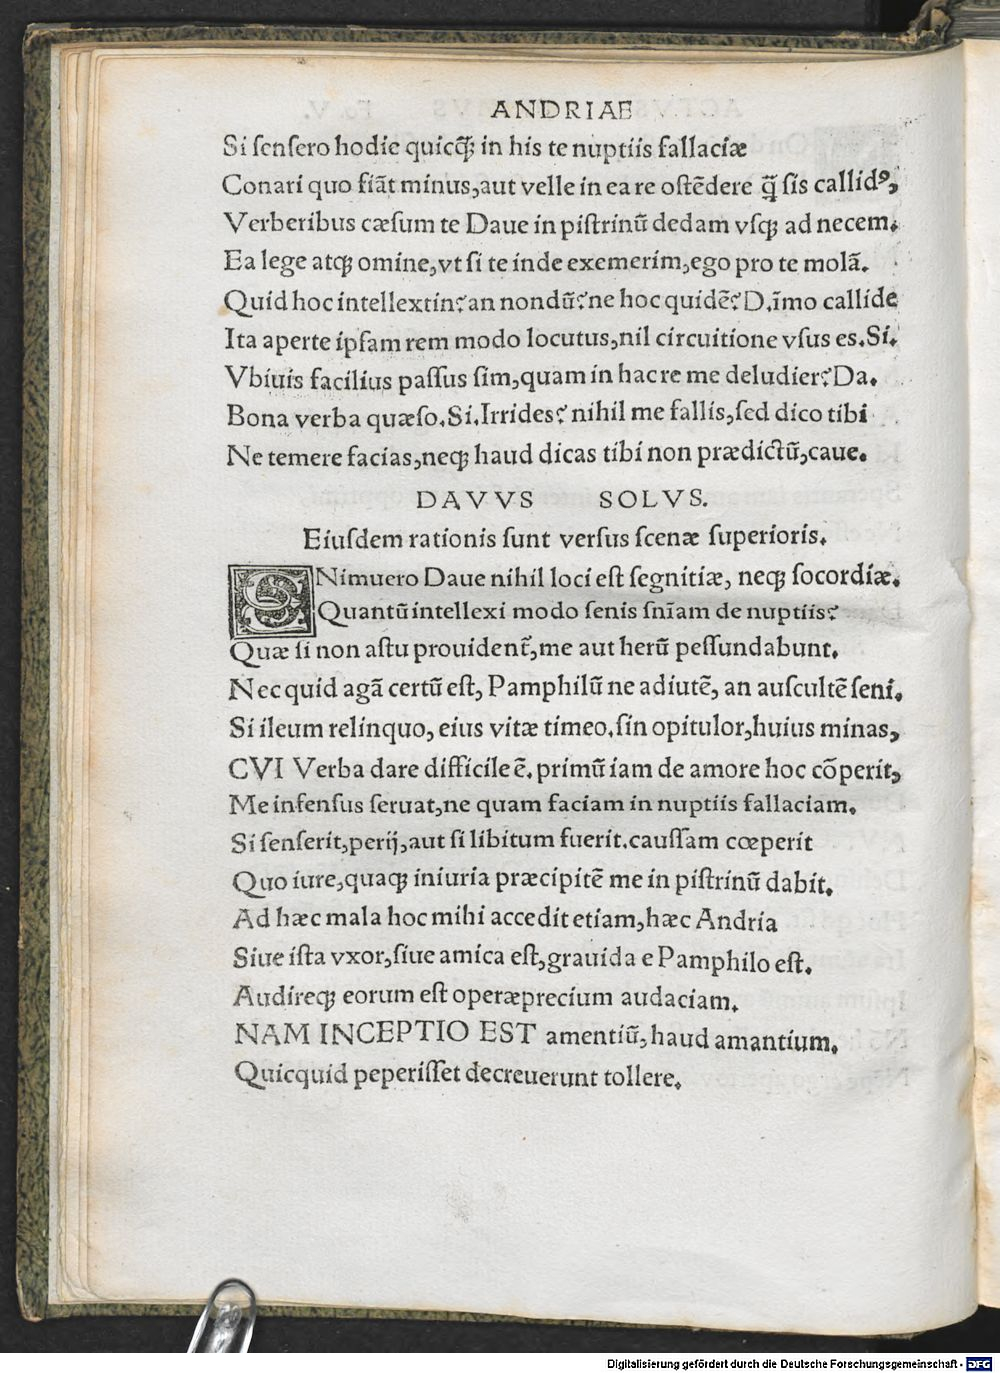 ANDRIAE
Si senſero hodie quicq̃; in his te nuptiis fallaciæ
Conari quo fiãt minus, aut velle in ea re oſtẽdere q̃ ſis callidꝰ,
Verberibus cæſum te Daue in piſtrinũ dedam vſq; ad necem.
Ea lege atq; omine, vt ſi te inde exemerim, ego pro te molã.
Quid hoc intellextin? an nondũ? ne hoc quidẽ? D. ĩmo callide
Ita aperte ipſam rem modo locutus, nil circuitione vſus es. Si.
Vbiuis facilius paſſus ſim, quam in hac re me deludier? Da.
Bona verba quæſo. Si. Irrides? nihil me fallis, ſed dico tibi
Ne temere facias, neq; haud dicas tibi non prædictũ, caue.
DAVVS SOLVS.
Eiuſdem rationis ſunt verſus scenæ ſuperioris.
SNimuero Daue nihil loci eſt ſegnitiæ, neq; ſocordiæ.
Quantũ intellexi modo ſenis ſniãm de nuptiis?
Quæ ſi non aſtu prouident̃, me aut herũ peſſundabunt.
Nec quid agã certũ eſt, Pamphilũ ne adiutẽ, an auſcultẽ ſeni.
Si ileum relinquo, eius vitæ timeo. ſin opitulor, huius minas,
CVI Verba dare difficile ẽ. primũ iam de amore hoc cõperit,
Me infenſus ſeruat, ne quam faciam in nuptiis fallaciam.
Si ſenſerit, perij, aut ſi libitum fuerit. cauſſam cœperit
Quo iure, quaq; iniuria præcipitẽ me in piſtrinũ dabit.
Ad hæc mala hoc mihi accedit etiam, hæc Andria
Siue iſta vxor, ſiue amica eſt, grauida e Pamphilo eſt.
Audireq; eorum eſt operæprecium audaciam.
NAM INCEPTIO EST amentiũ, haud amantium.
Quicquid peperiſſet decreuerunt tollere.
Digitalisierung gefördert durch die Deutsche Forschungsgemeinschaft - DFG